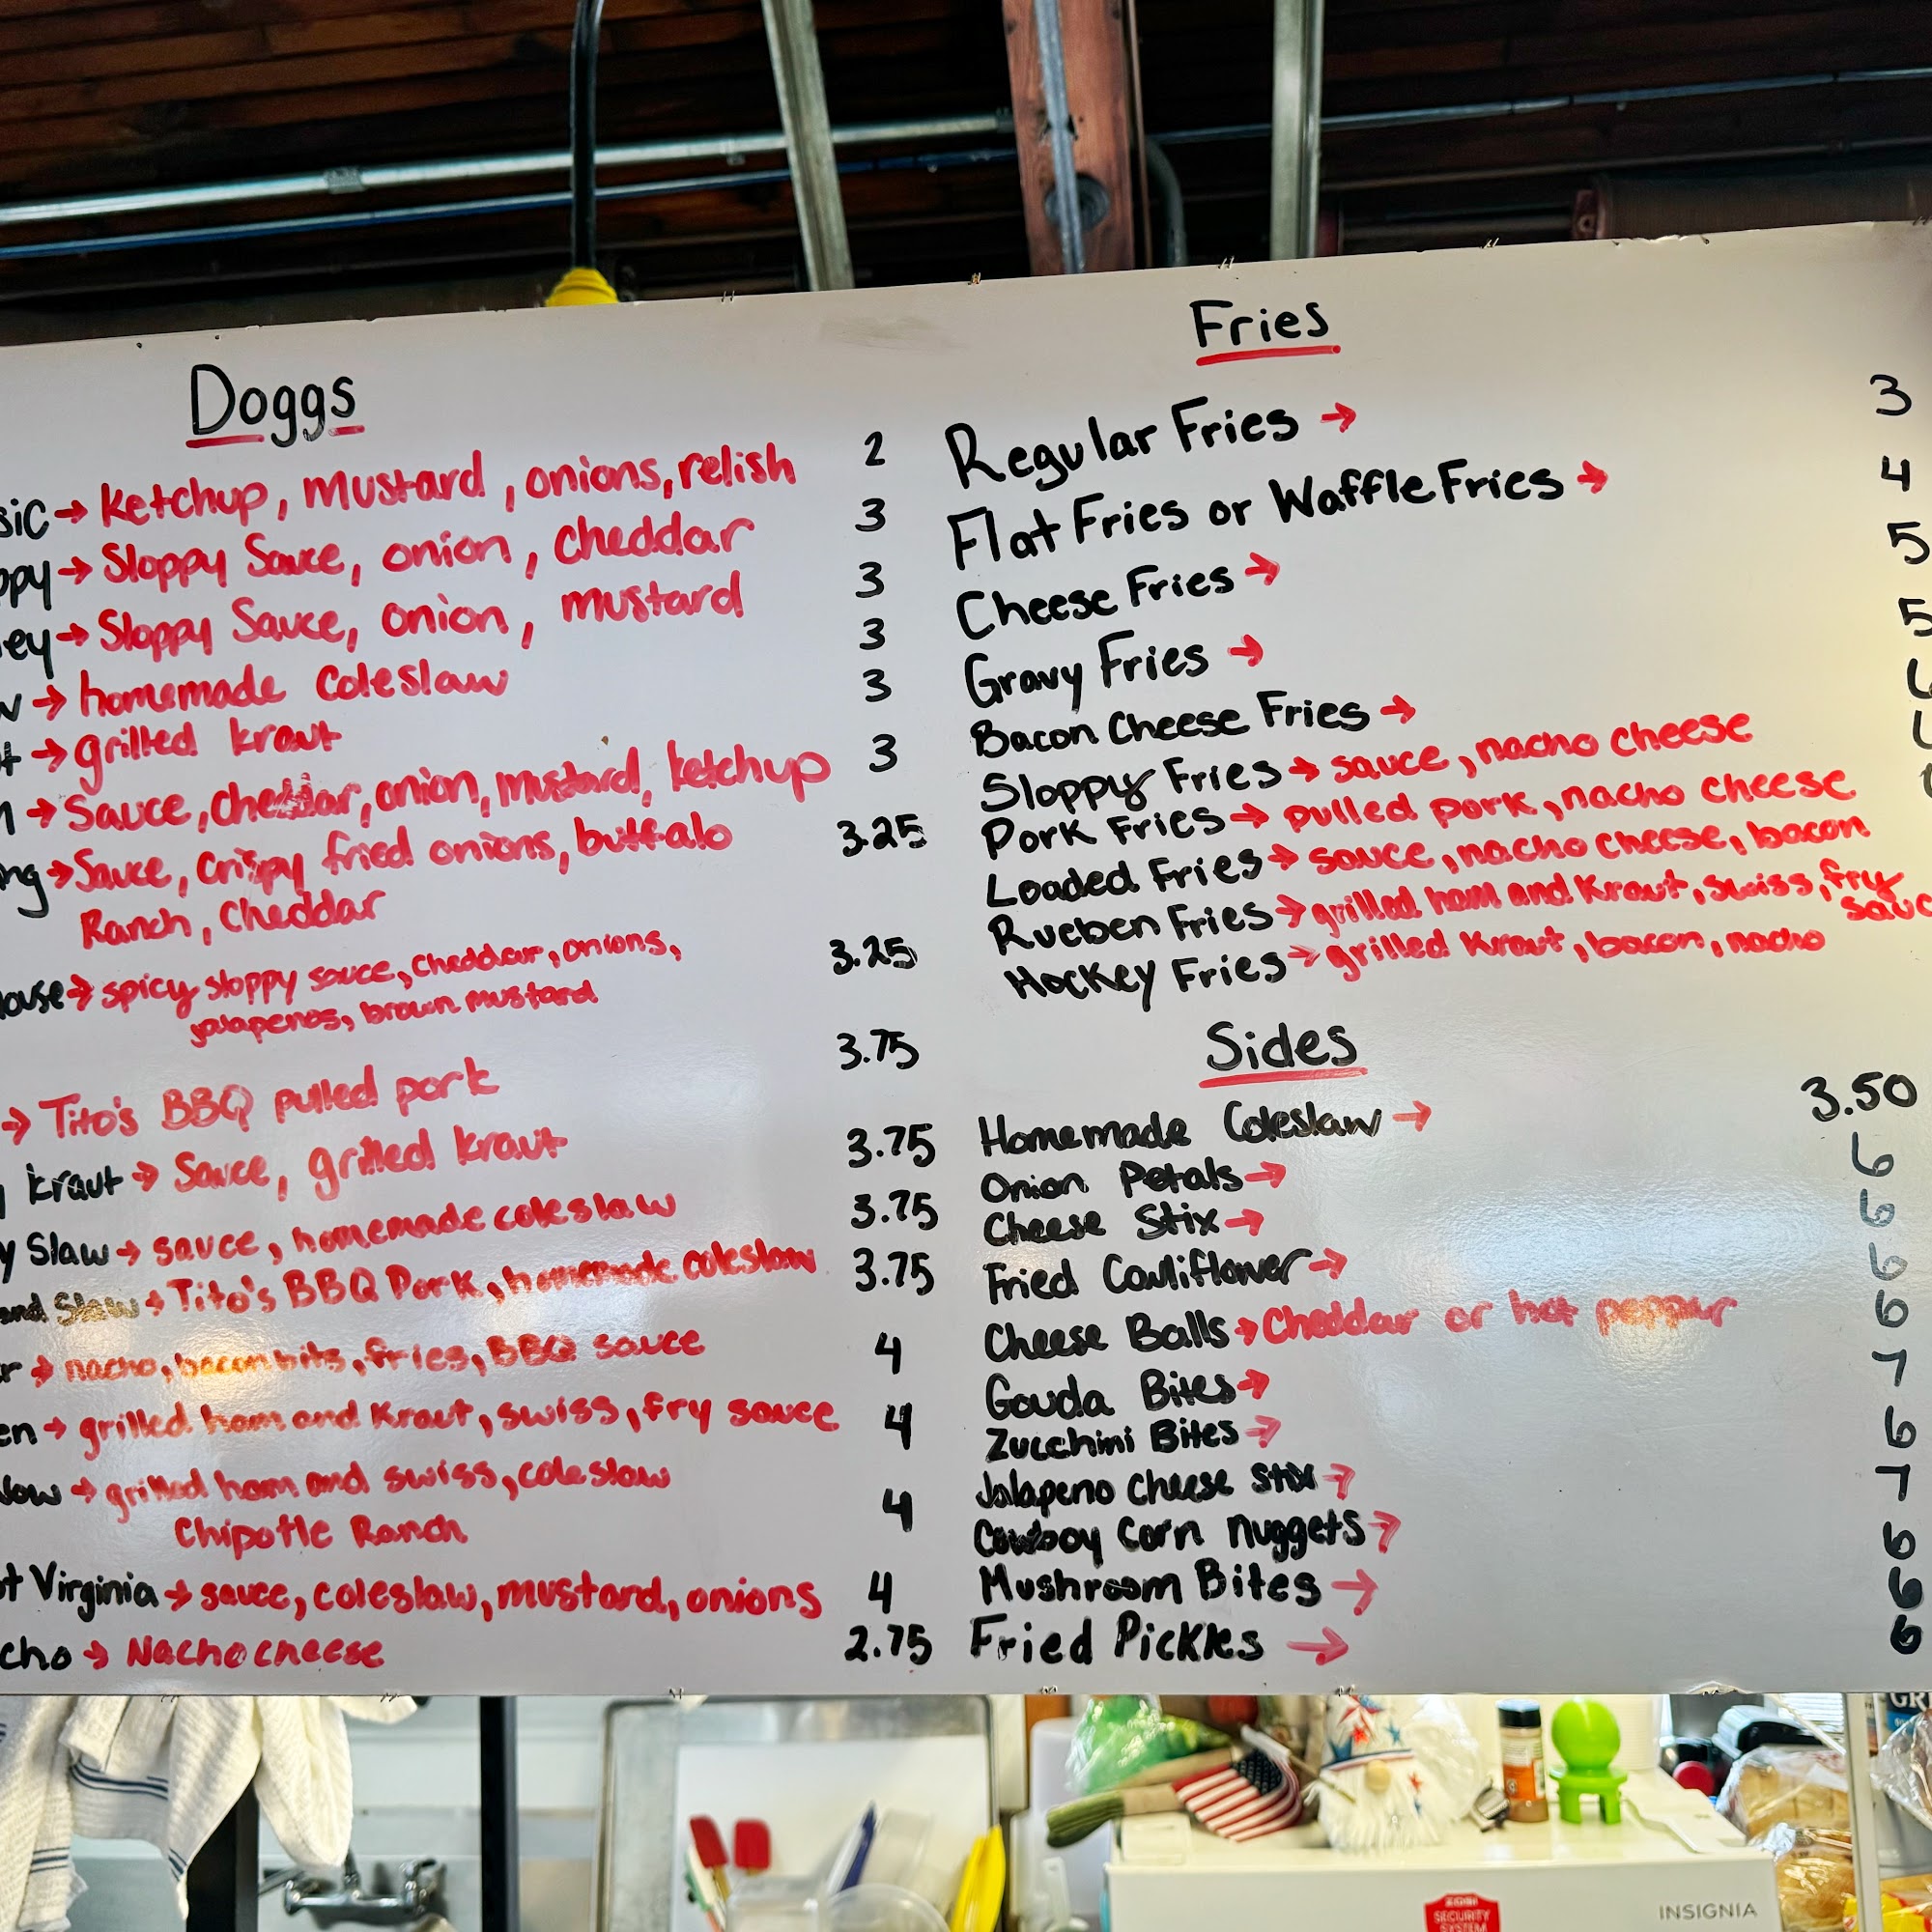 Doggs
sic → Ketchup, Mustard, onions, relish 2
ppy → Sloppy Sauce, onion, cheddar 3
ey → Sloppy Sauce, onion, mustard 3
w → homemade coleslaw 3
t → grilled kraut 3
→ Sauce, cheddar, onion, mustard, ketchup 3
ng → Sauce, crispy fried onions, buffalo 3.25
Ranch, Cheddar
ouse → spicy sloppy sauce, cheddar, onions, 3.25
jalapenos, brown mustard
→ Tito's BBQ pulled pork 3.75
y kraut → Sauce, grilled kraut 3.75
y Slaw → sauce, homemade coleslaw 3.75
and Slaw → Tito's BBQ Pork, homemade coleslaw 3.75
r → nacho, bacon bits, fries, BBQ sauce 4
en → grilled ham and Kraut, swiss, fry sauce 4
low → grilled ham and swiss, coleslaw 4
Chipotle Ranch
t Virginia → sauce, coleslaw, mustard, onions 4
cho → Nacho cheese 2.75
Fries
Regular Fries → 3
Flat Fries or Waffle Fries → 4
Cheese Fries → 5
Gravy Fries → 5
Bacon Cheese Fries →
Sloppy Fries → sauce, nacho cheese
Pork Fries → pulled pork, nacho cheese
Loaded Fries → sauce, nacho cheese, bacon
Rueben Fries → grilled ham and Kraut, swiss, fry
sauc
Hockey Fries → grilled Kraut, bacon, nacho
Sides
Homemade Coleslaw → 3.50
Onion Petals → 6
Cheese Stix → 6
Fried Cauliflower → 6
Cheese Balls → Cheddar or hot pepper 6
Gouda Bites → 7
Zucchini Bites → 6
Jalapeno cheese stix → 7
Cowboy Corn nuggets → 6
Mushroom Bites → 6
Fried Pickles → 6
SECURITY
SYSTEM
INSIGNIA
GR